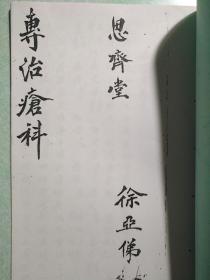 思齊堂
徐亞俤
專治瘡科